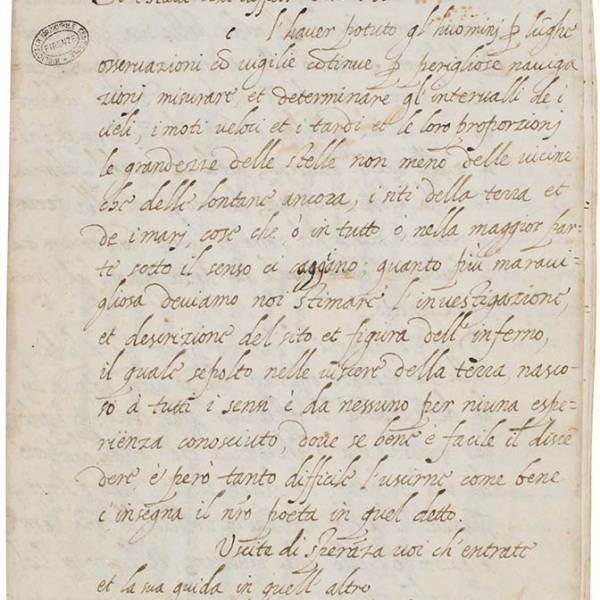 FIRENZE
c l'haver potuto gl'huomini p lughe
osservazioni cō vigilie cōtinue p perigliose naviga
zioni, misurare et determinare gl'intervalli de i
cieli, i moti veloci et i tardi et le loro proporzioni
le grandezze delle stelle non meno delle vicine
che delle lontane ancora, i siti della terra et
de i mari, cose che ò in tutto, ò nella maggior par-
te sotto il senso ci caggiano; quanto più maravi-
gliosa deviamo noi stimare l'investigazione,
et descrizione del sito et figura dell'inferno,
il quale sepolto nelle viscere della terra, nasco-
so à tutti i sensi è da nessuno per niuna espe-
rienza conosciuto, dove se bene è facile il discē
dere, è però tanto difficile l'uscirne come bene
c'insegna il nro poeta in quel detto.
Uscite di speranza voi ch'entrate
et la sua guida in quell'altro